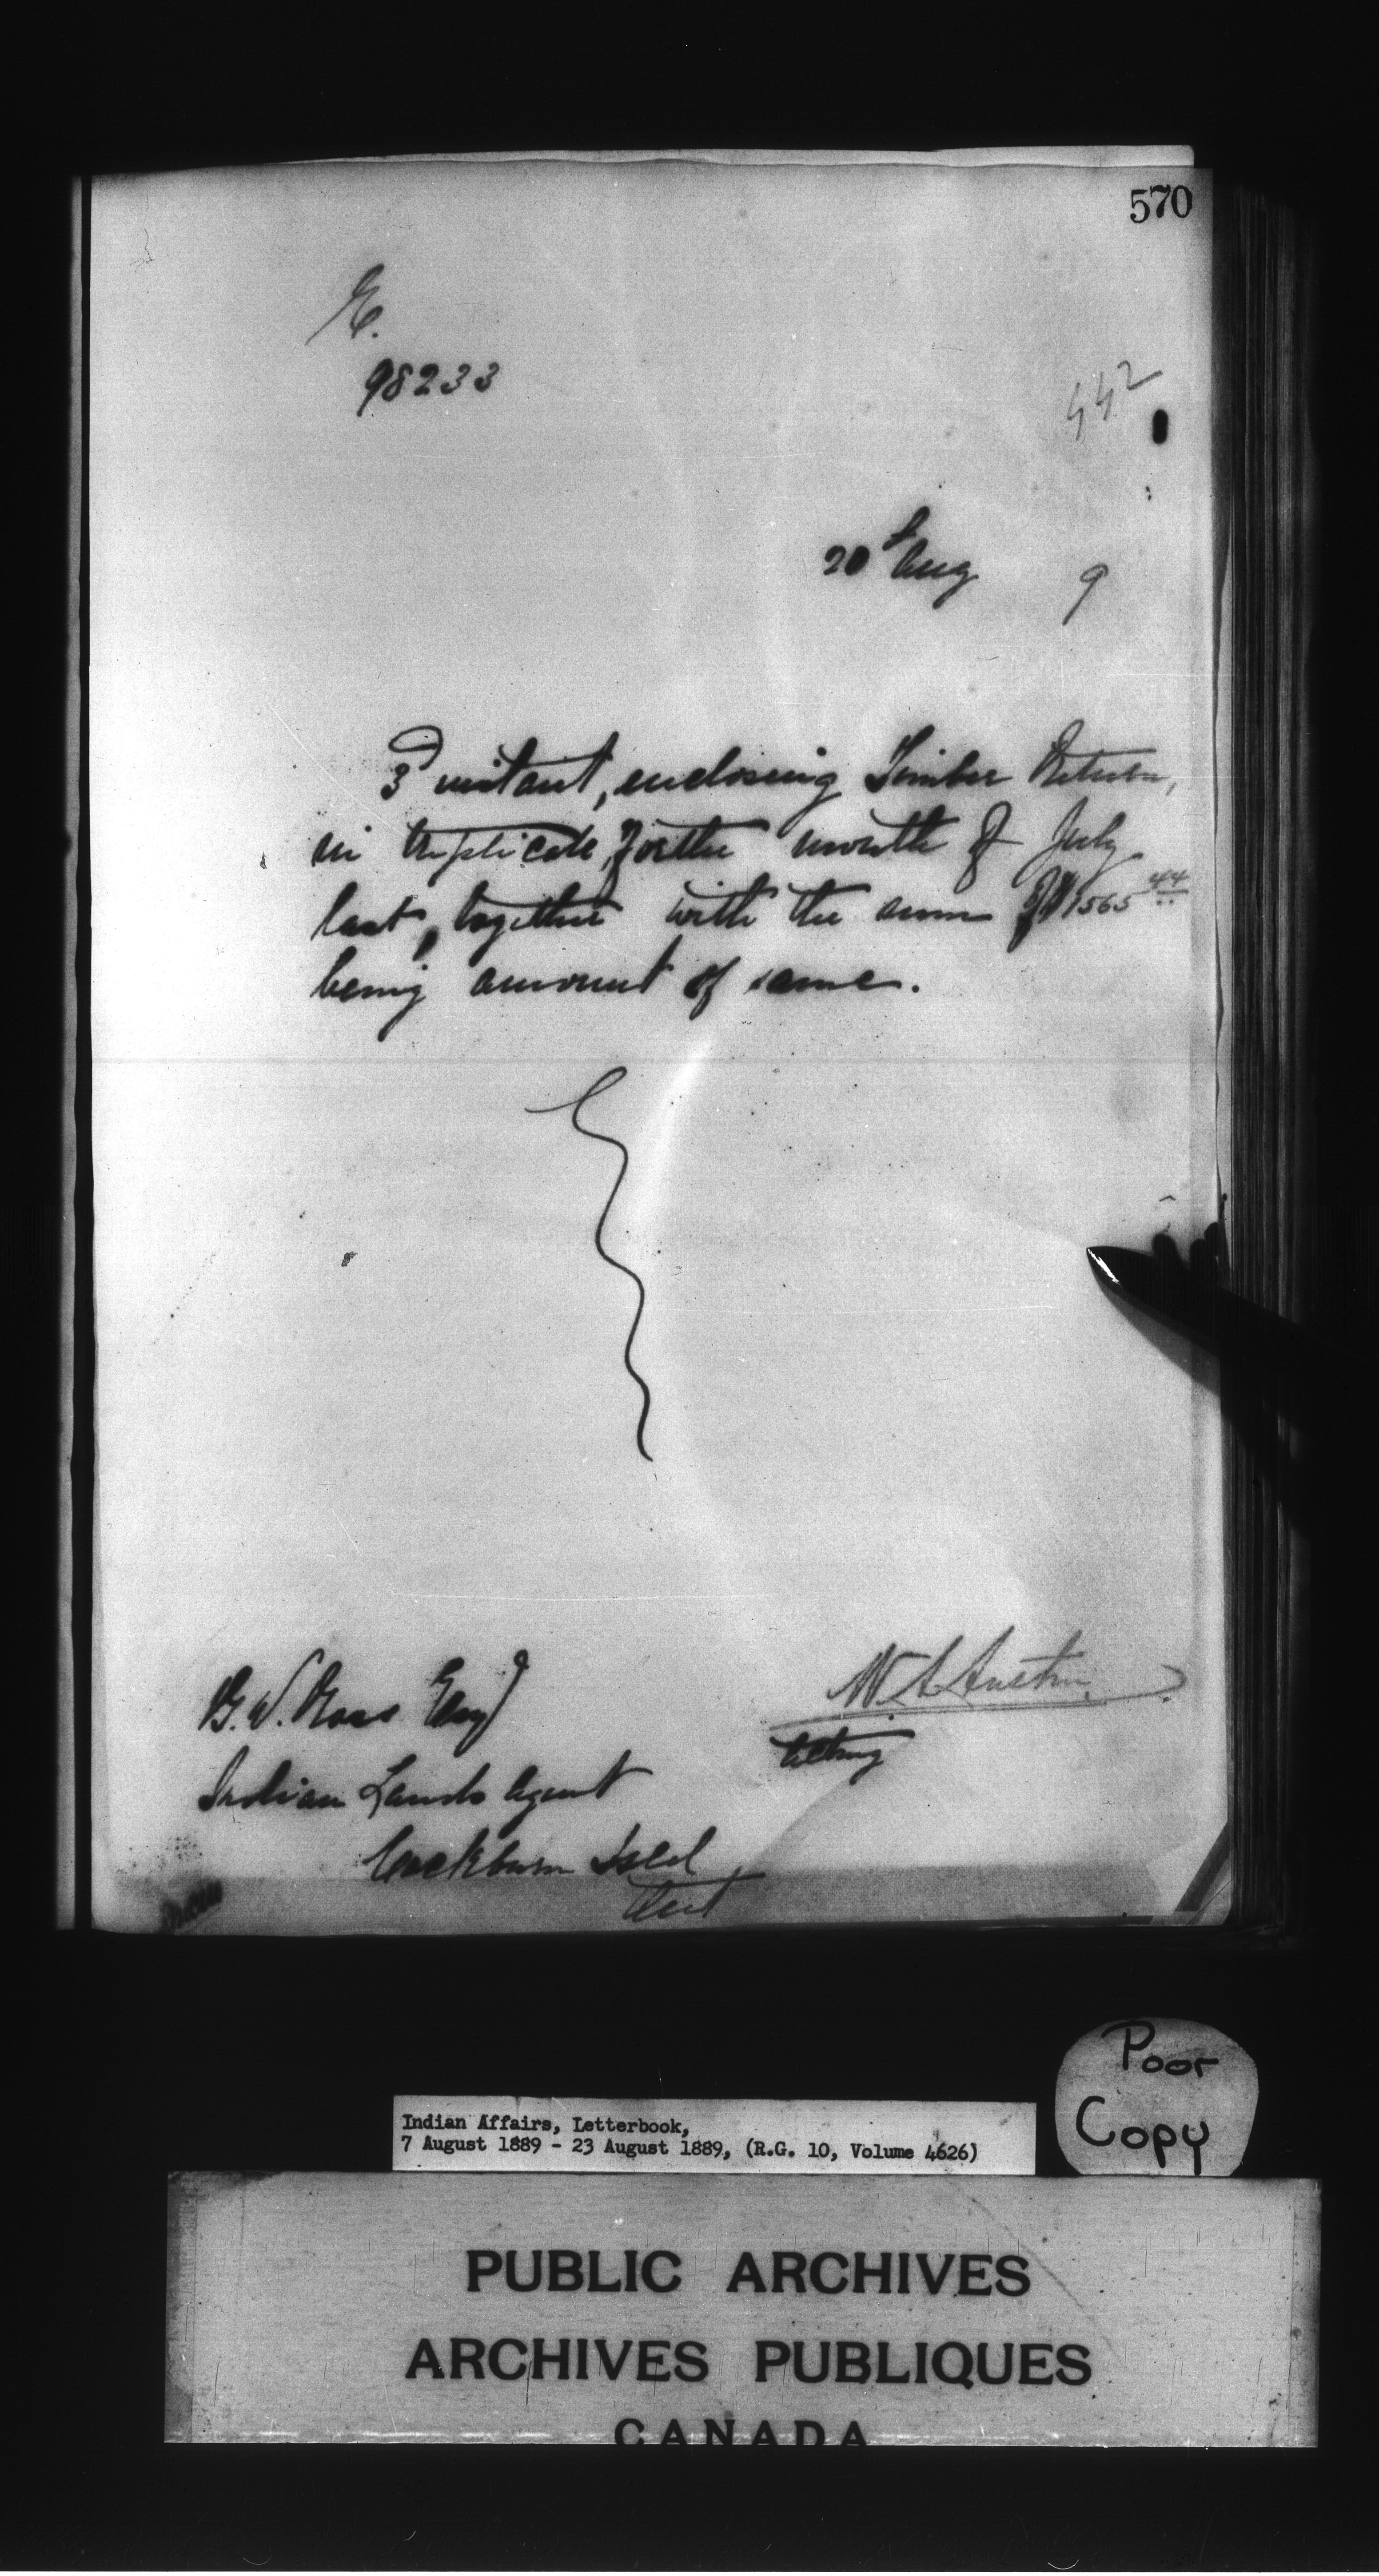 570
E.
98233
442
20th Aug 9
3d instant, enclosing Timber Return,
in triplicate, for the month of July
last, together with the sum of $1565 44
being amount of same.
B. W. Ross Esq
W. A. Austin
Acting
Indian Lands Agent
Cockburn Isld
Ont
Poor
Copy
Indian Affairs, Letterbook,
7 August 1889 - 23 August 1889, (R.G. 10, Volume 4626)
PUBLIC ARCHIVES
ARCHIVES PUBLIQUES
CANADA